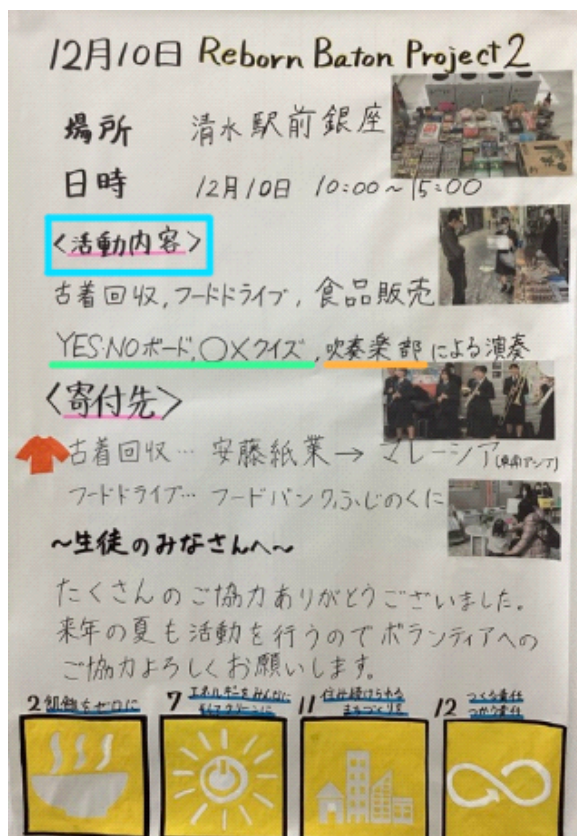 12月10日 Reborn Baton Project2
場所 清水駅前銀座
日時 12月10日 10:00~15:00
<活動内容>
古着回収,フードドライブ,食品販売
YES・NOボード,○×クイズ,吹奏楽部による演奏
<寄付先>
古着回収… 安藤紙業→マレーシア(東南アジア)
フードドライブ… フードバンクふじのくに
~生徒のみなさんへ~
たくさんのご協力ありがとうございました。
来年の夏も活動を行うのでボランティアへの
ご協力よろしくお願いします。
2 飢餓をゼロに
7 エネルギーをみんなに
そしてクリーンに
11 住み続けられる
まちづくりを
12 つくる責任
つかう責任